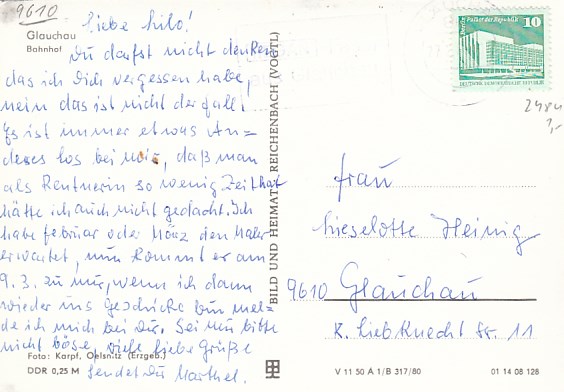 9610
Liebe Lilo!
Glauchau
Bahnhof
Du darfst nicht denken
das ich Dich vergessen habe,
nein das ist nicht der Fall!
Es ist immer etwas An=
deres los bei mir, daß man
als Rentnerin so wenig Zeit hat
hätte ich auch nicht gedacht. Ich
habe Februar oder März den Maler
erwartet, nun kommt er am
9.3. zu mir, wenn ich dann
wieder ins Geschicke bin mel=
de ich mich bei Dir. Sei nun bitte
nicht böse, viele liebe Grüße
Foto: Karpf, Oelsnitz (Erzgeb.)
DDR 0,25 M
sendet Dir Marthel.
BILD UND HEIMAT REICHENBACH (VOGTL)
Berlin Palast der Republik 10
DEUTSCHE DEMOKRATISCHE REPUBLIK
1,-
Frau
Lieselotte Heinig
9610 Glauchau
K. Liebknecht Str. 11
V 11 50 A 1/B 317/80
01 14 08 128